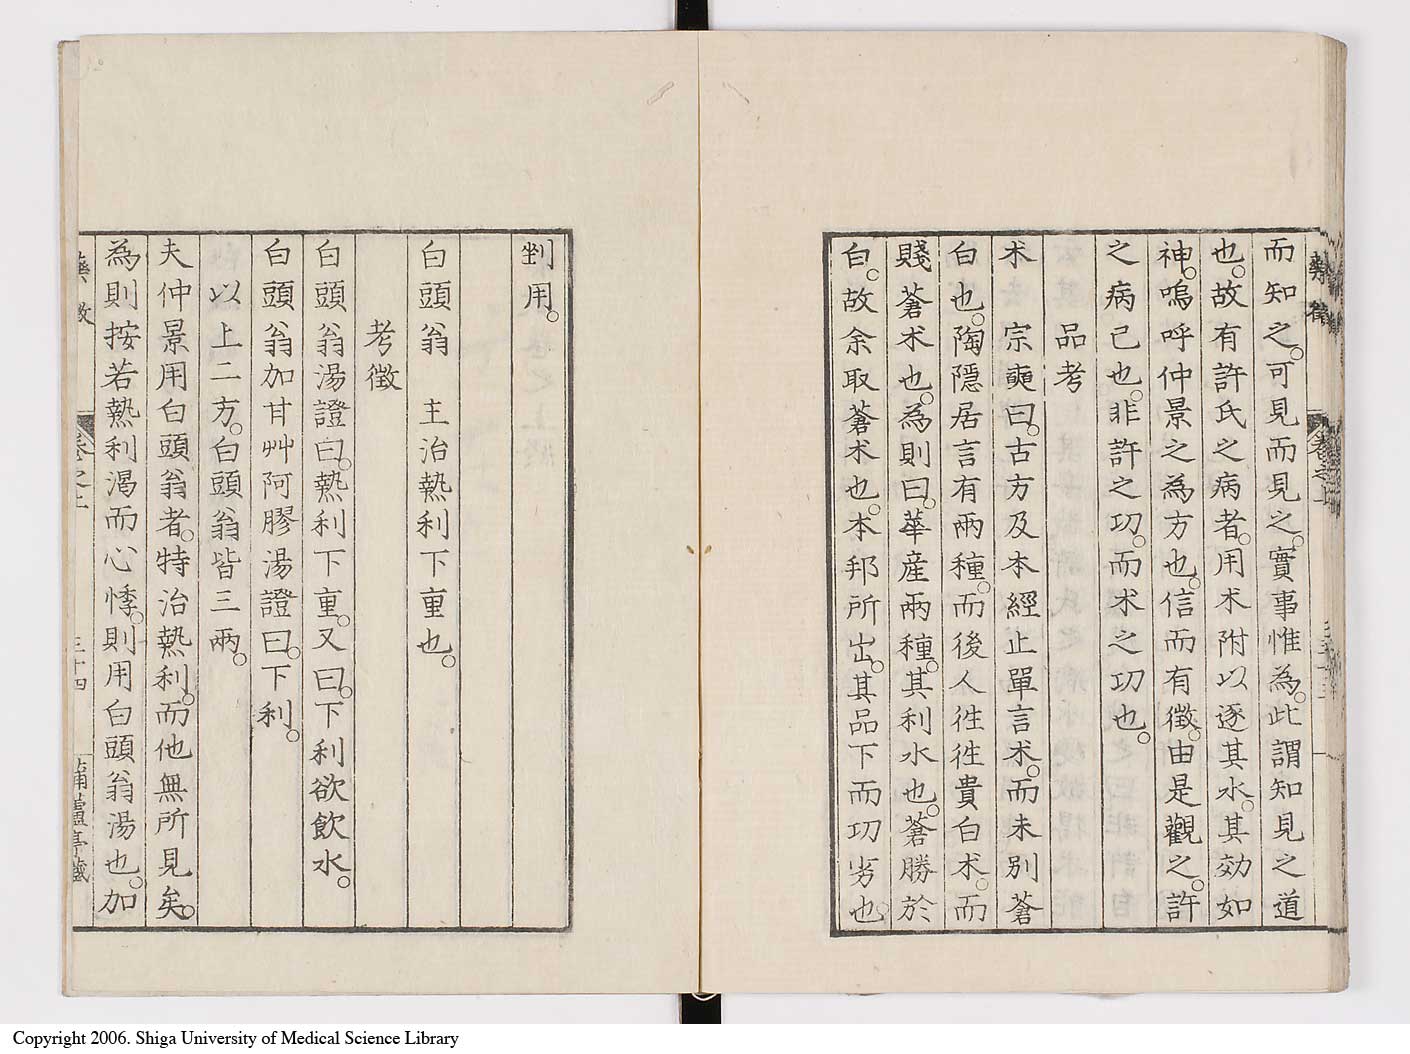 藥徵
卷之上
三十三
而知之。可見而見之。實事惟為。此謂知見之道
也。故有許氏之病者。用朮附以逐其水。其効如
神。嗚呼仲景之為方也。信而有徵。由是觀之。許
之病已也。非許之功。而朮之功也。
品考
朮 宗奭曰。古方及本經止單言朮。而未別蒼
白也。陶隱居言有兩種。而後人徃徃貴白朮。而
賤蒼朮也。為則曰。華產兩種。其利水也。蒼勝於
白。故余取蒼朮也。本邦所出。其品下而功劣也。
剉用。
白頭翁 主治熱利下重也。
考徵
白頭翁湯證曰。熱利下重。又曰。下利欲飲水。
白頭翁加甘艸阿膠湯證曰。下利。
以上二方。白頭翁皆三兩。
夫仲景用白頭翁者。特治熱利。而他無所見矣。
為則按若熱利渴而心悸。則用白頭翁湯也。加
藥徵
卷之上
三十四
蒲蘆亭藏
Copyright 2006. Shiga University of Medical Science Library